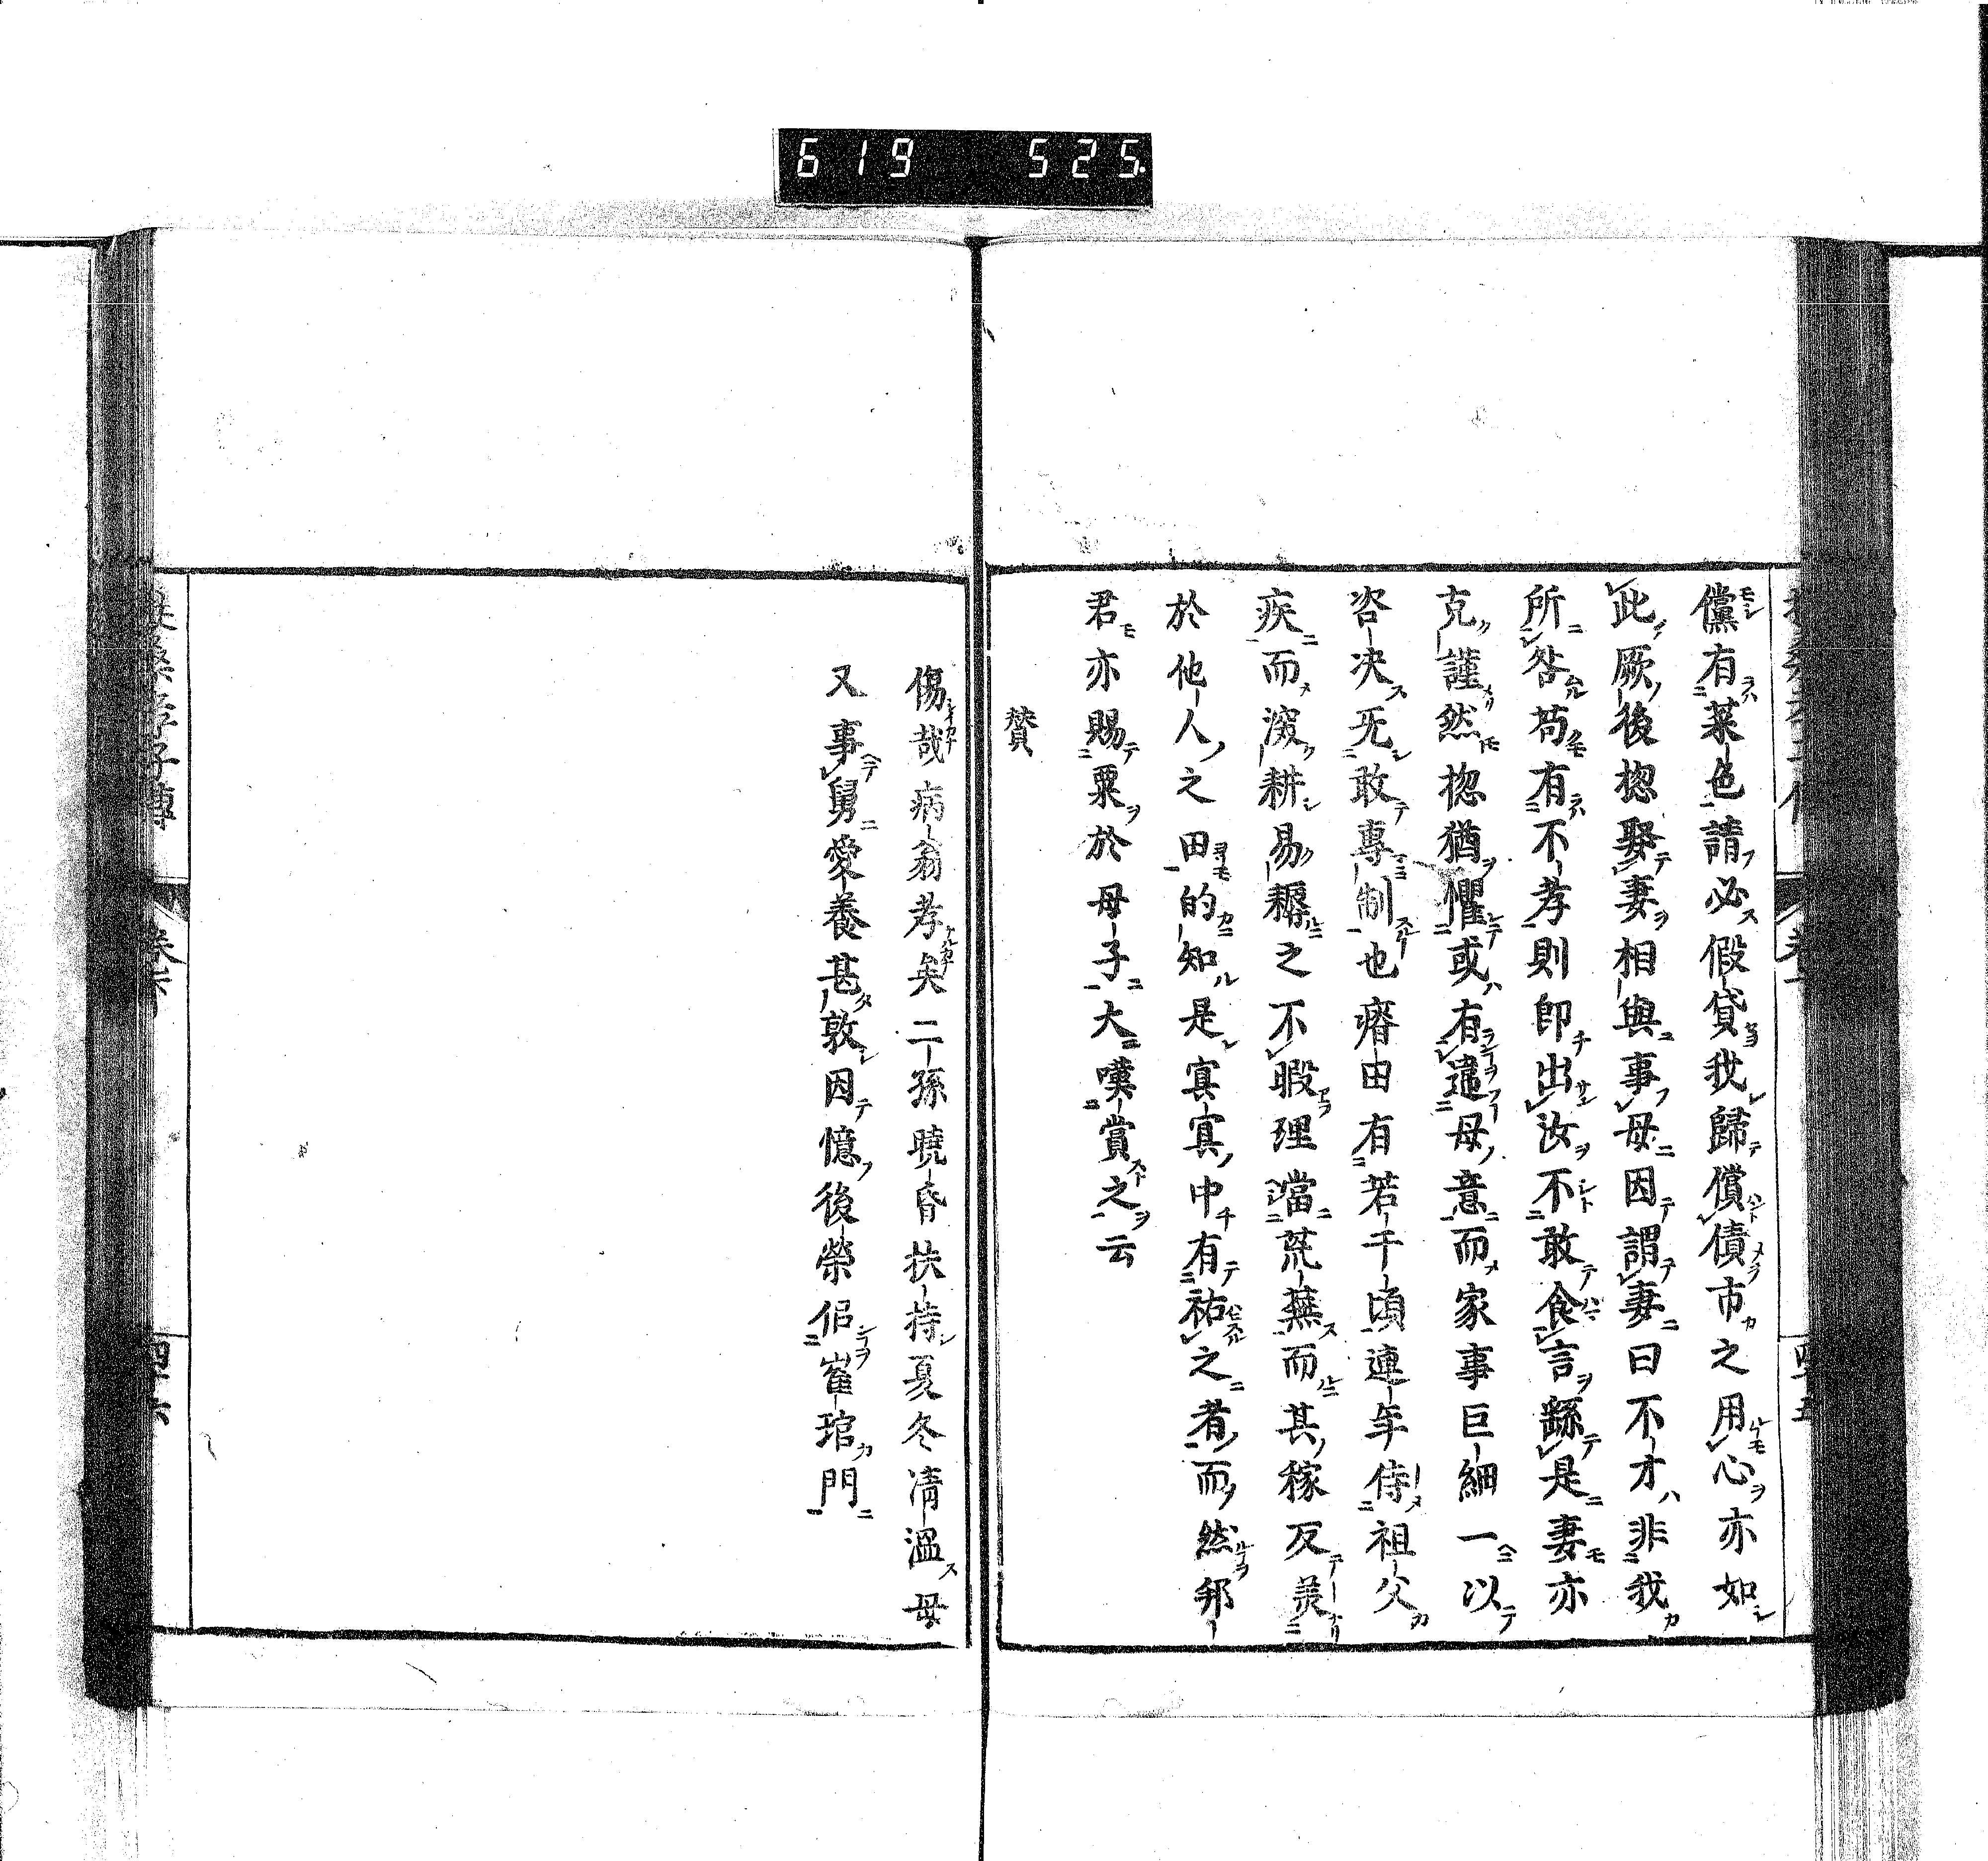 619 525
儻有菜色請必假貸我歸償債市之用心亦如
此厥後揔娶妻相與事母因謂妻曰不才非我
所咎苟有不孝則即出汝不敢食言繇是妻亦
克謹然揔猶懼或有違母意而家事巨細一以
咨决无敢專制也瘠田有若干頃連年侍祖父
疾而深耕易耨之不暇理當荒蕪而其稼反美
於他人之田的知是寘寘中有祐之者而然邦
君亦賜粟於母子大嘆賞之云
賛
傷哉病翁孝矣二孫曉昏扶持夏冬凊溫母
又事舅愛養甚敦因憶後榮侶崔琯門
扶桑孝子傳
卷六
四十六
四十五